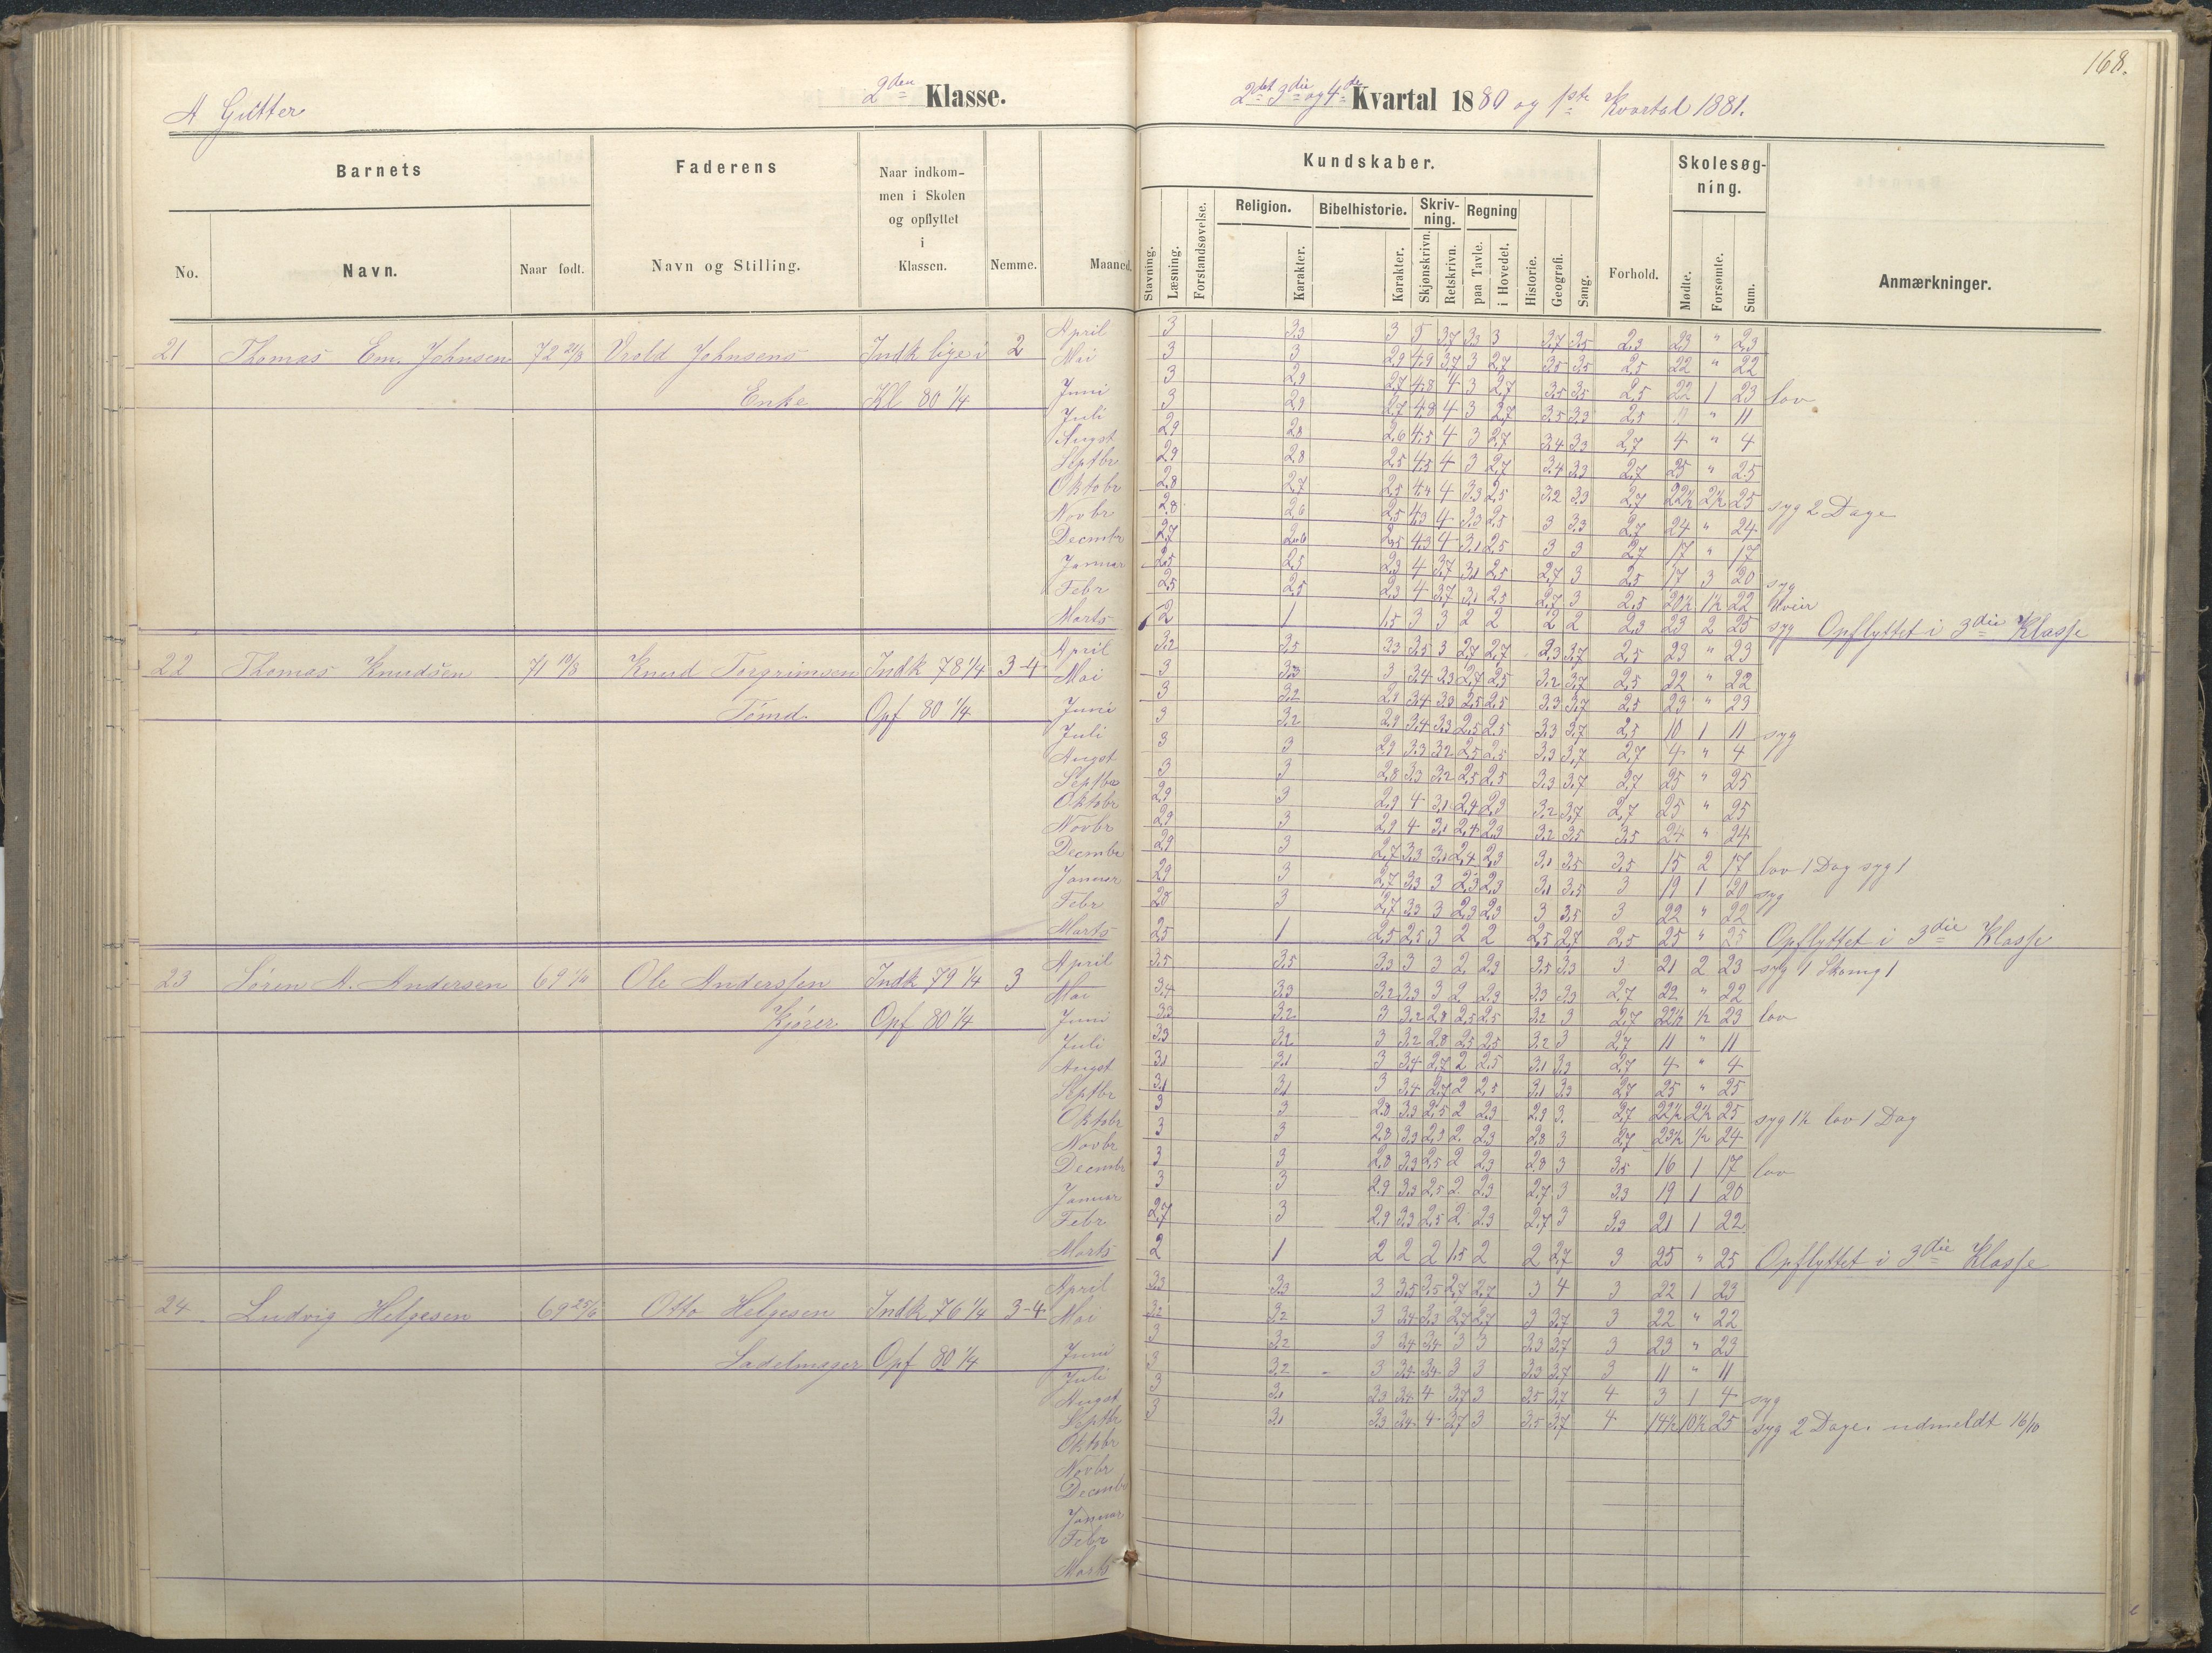 168.
A Gutter
2den Klasse.
2det 3die og 4de Kvartal 1880 og 1ste Kvartal 1881.
Barnets
Faderens
Naar indkommen i Skolen og opflyttet i Klassen.
Nemme.
Maaned.
No.
Navn.
Naar født.
Navn og Stilling.
Kundskaber.
Skolesøgning.
Stavning.
Læsning.
Forstandsøvelse.
Religion.
Karakter.
Bibelhistorie.
Karakter.
Skrivning.
Skjønskrivn.
Retskrivn.
Regning
paa Tavle.
i Hovedet.
Historie.
Geografi.
Sang.
Forhold.
Mødte.
Forsømte.
Sum.
Anmærkninger.
21 Thomas Em. Johnsen 72 21/8 Johnsens Indk lige i 2
Enke Kl 80 1/4
April 3 3,3 3 5 3,7 3,3 3 3,7 3,5 2,3 23 " 23
Mai 3 3 2,9 4,9 3,7 3 2,7 3,5 3,5 2,5 22 " 22
Juni 3 2,9 2,7 4,8 4 3 2,7 3,5 3,5 2,5 22 1 23 lov
Juli 3 2,9 2,7 4,8 4 3 2,7 3,5 3,3 2,5 11 " 11
Augst 2,9 2,8 2,6 4,5 4 3 2,7 3,4 3,3 2,7 4 " 4
Septbr 2,9 2,8 2,5 4,5 4 3 2,7 3,4 3,3 2,7 25 " 25
Oktobr 2,8 2,7 2,5 4,4 4 3,3 2,5 3,2 3,3 2,7 22½ 2½ 25 syg 2 Dage
Novbr 2,8 2,6 2,5 4,3 4 3,3 2,5 3 3,3 2,7 24 " 24
Decmbr 2,7 2,6 2,5 4,3 4 3,1 2,5 3 3 2,7 17 " 17
Januar 2,5 2,5 2,3 4 3,7 3,1 2,5 2,7 3 2,5 17 3 20 syg
Febr 2,5 2,5 2,3 4 3,7 3,1 2,5 2,7 3 2,5 20½ 1½ 22 Uveir
Marts 2 1 1,5 3 3 2 2 2 2 2,3 23 2 25 syg Opflyttet i 3die Klasse
22 Thomas Knudsen 71 19/8 Knud Torgrimsen Indk 78 1/4 3-4
Tømd. Opf 80 1/4
April 3,2 3,5 3,3 3,5 3 2,7 2,7 3,3 3,7 2,5 23 " 23
Mai 3 3,3 3 3,4 3,3 2,7 2,5 3,2 3,7 2,5 22 " 22
Juni 3 3,2 2,9 3,4 3,3 2,5 2,5 3,3 3,7 2,5 23 " 23
Juli 3 3,2 2,9 3,4 3,3 2,5 2,5 3,3 3,7 2,5 10 1 11 syg
Augst 3 3 2,9 3,3 3,2 2,5 2,5 3,3 3,7 2,7 4 " 4
Septbr 3 3 2,8 3,3 3,2 2,5 2,5 3,3 3,7 2,7 25 " 25
Oktobr 2,9 3 2,9 4 3,1 2,4 2,3 3,2 3,7 2,7 25 " 25
Novbr 2,9 3 2,9 4 3,1 2,4 2,3 3,2 3,5 3,5 24 " 24
Decmbr 2,9 3 2,7 3,3 3,1 2,4 2,3 3,1 3,5 3,5 15 2 17 lov 1 Dag syg 1
Januar 2,9 3 2,7 3,3 3 2,3 2,3 3,1 3,5 3 19 1 20 syg
Febr 2,8 3 2,7 3,3 3 2,3 2,3 3 3,5 3 22 " 22
Marts 2,5 1 2,5 2,5 3 2 2 2,5 2,7 2,5 25 " 25 Opflyttet i 3die Klasse
23 Søren A. Andersen 69 Ole Anderssen Indk 79 1/4 3
Kjører Opf 80 1/4
April 3,5 3,5 3,3 3 3 2 2,3 3,5 3,3 3 21 2 23 syg 1
Mai 3,4 3,3 3,2 3,3 3 2 2,3 3,3 3,3 2,7 22 " 22
Juni 3,3 3,2 3 3,2 2,8 2,5 2,5 3,2 3 2,7 22½ ½ 23 lov
Juli 3,3 3,2 3 3,2 2,8 2,5 2,5 3,2 3 2,7 11 " 11
Augst 3,1 3,1 3 3,4 2,7 2 2,5 3,1 3,3 2,7 4 " 4
Septbr 3,1 3,1 3 3,4 2,7 2 2,5 3,1 3,3 2,7 25 " 25
Oktobr 3 3 2,8 3,3 2,5 2 2,3 2,9 3 2,7 22½ 2½ 25 syg 1½ lov 1 Dag
Novbr 3 3 2,8 3,3 2,5 2 2,3 2,8 3 2,7 23½ ½ 24
Decmbr 3 3 2,8 3,3 2,5 2 2,3 2,8 3 3,5 16 1 17 lov
Januar 3 3 2,9 3,3 2,5 2 2,3 2,7 3 3,3 19 1 20
Febr 2,7 3 2,9 3,3 2,5 2 2,3 2,7 3 3,3 21 1 22
Marts 2 1 2 2 2 1,5 2 2 2,7 3 25 " 25 Opflyttet i 3die Klasse
24 Ludvig Helgesen 69 25/6 Otto Helgesen Indk 76 1/4 3-4
Sadelmager Opf 80 1/4
April 3,3 3,3 3 3,5 3,5 2,7 2,7 3 4 3 22 1 23
Mai 3,2 3,2 3 3,4 3,3 2,7 2,7 3 3,7 3 22 " 22
Juni 3 3,2 3 3,4 3,4 3 3 3,3 3,7 3 23 " 23
Juli 3 3,2 3 3,5 3,4 3 3 3,3 3,7 3 11 " 11
Augst 3 3,1 3,3 3,4 4 3,7 3 3,5 3,7 4 3 1 4 syg
Septbr 3 3,1 3,3 3,4 4 3,7 3 3,5 3,7 4 14½ 10½ 25 syg 2 Dage. udmeldt 16/10
Oktobr
Novbr
Decmbr
Januar
Febr
Marts